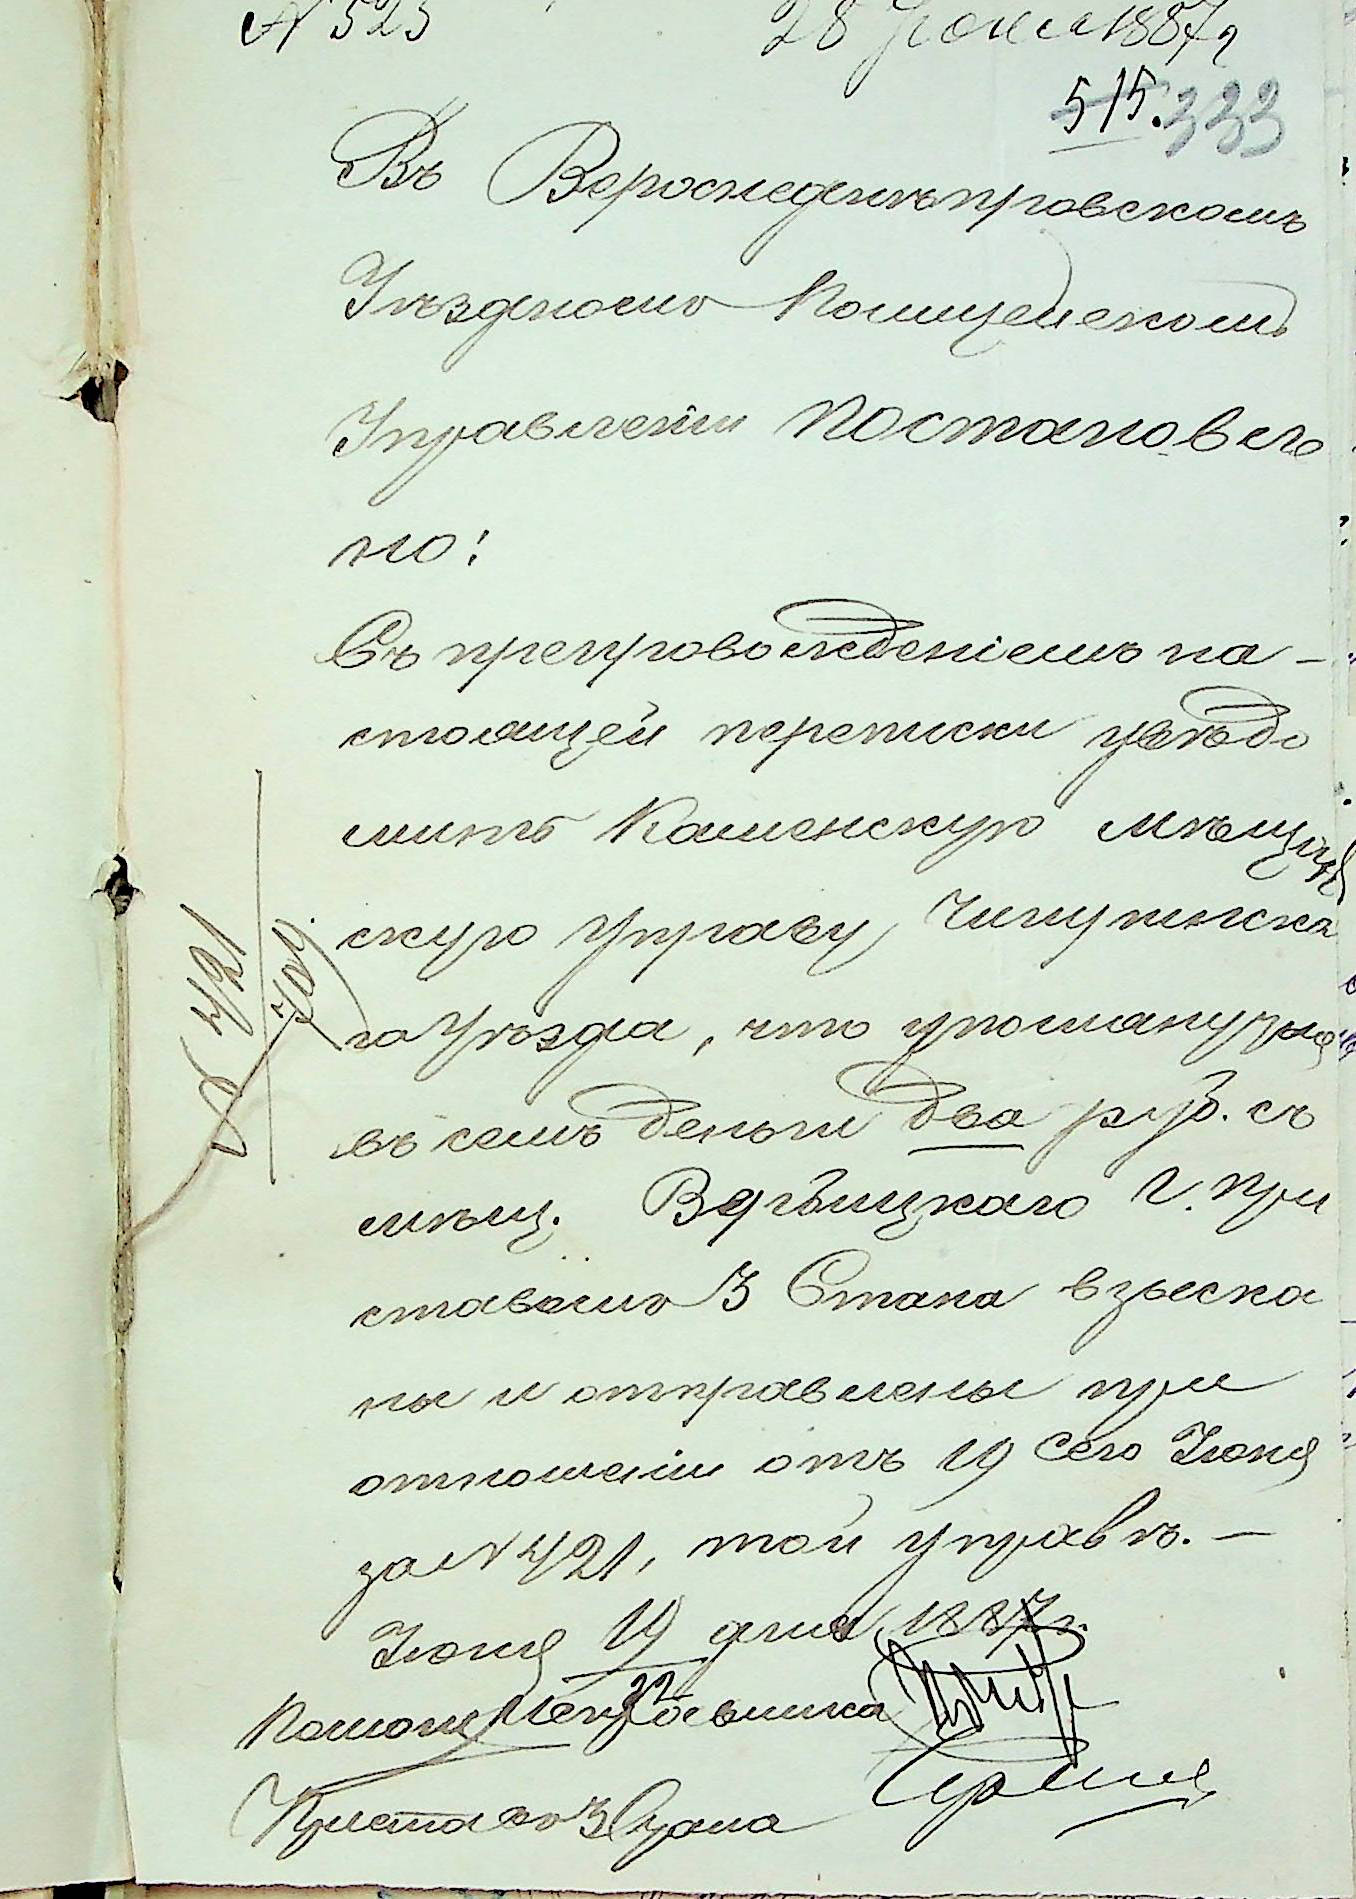 № 523 28 Іюня 1887 г
515. 333
Въ Верхнеднѣпровскомъ
Уѣздномъ Полицейскомъ
Управленіи Постановле
но:
Съ препровожденіемъ на-
стоящей переписки увѣдо
мить Каменскую мѣщан
скую Управу, Чигиринска
го Уѣзда, что упомянутыя
въ семъ деньги два руб. съ
мѣщ. Г. При
ставомъ 3 Стана взыска
ны и отправлены при
отношеніи отъ 19 сего Іюня
за № 421, той управѣ. —
Іюня 19 дня 1887 г.
22
Помощ
Пристава 3 Стана
№ 421